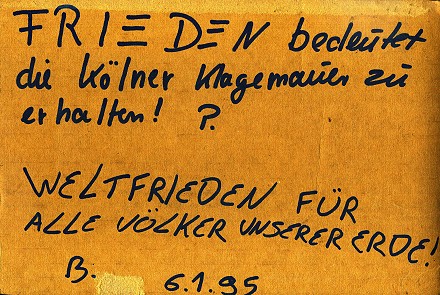 FRIEDEN bedeutet
die Kölner Klagemauer zu
erhalten! ?.
WELTFRIEDEN FÜR
ALLE VÖLKER UNSERER ERDE!
B. 6.1.95